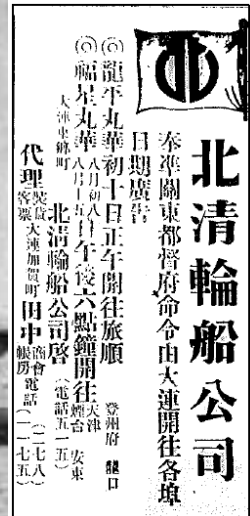 北清輪船公司
奉準關東都督府命令由大連開往各埠
日期廣告
◎龍平丸華初十日正午開往旅順 登州府 龍口
◎福星丸華八月初八八月十五日午後六點鐘開往天津 煙台 安東
大連東鄉町 北清輪船公司啓(電話五一五)
代理裝貨客票大連加賀町田中商會帳房電話(二七八)(一一七五)